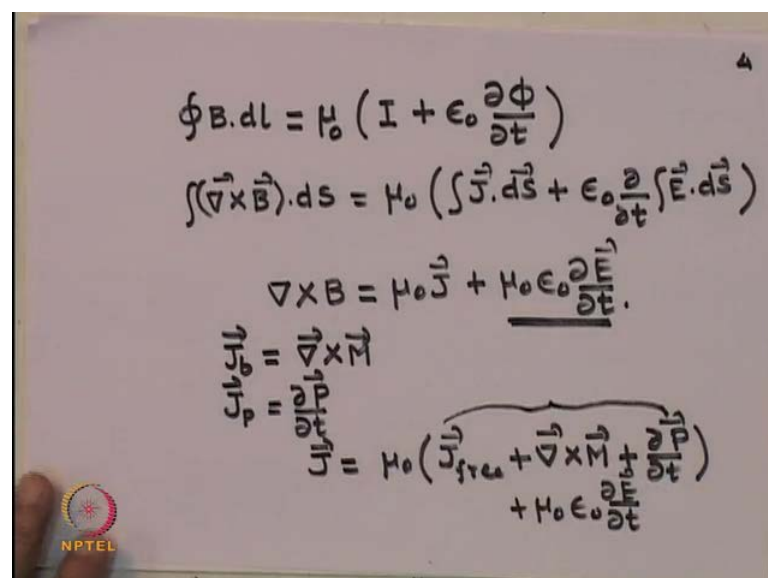 4
∮B.dl = μ₀ (I + ε₀ ∂Φ/∂t)
∫(∇⃗×B⃗).ds = μ₀ (∫J⃗.dS⃗ + ε₀ ∂/∂t ∫E⃗.dS⃗)
∇×B = μ₀J⃗ + μ₀ε₀ ∂E⃗/∂t.
J⃗b = ∇⃗×M⃗
J⃗p = ∂P⃗/∂t
J⃗ = μ₀(J⃗free + ∇⃗×M⃗ + ∂P⃗/∂t)
+ μ₀ε₀ ∂E⃗/∂t
NPTEL